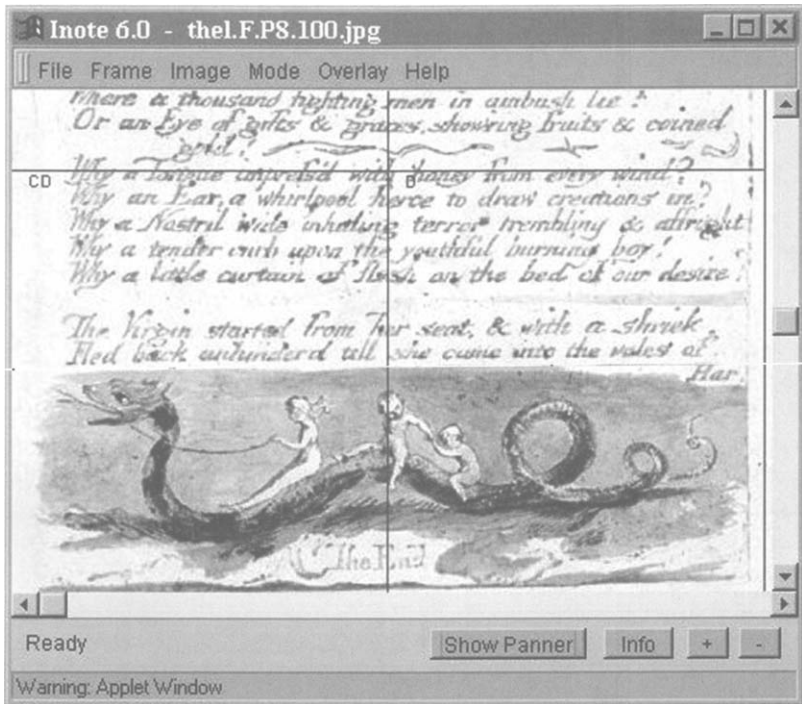 Inote 6.0 - thel.F.P8.100.jpg
File Frame Image Mode Overlay Help
Where a thousand fighting men in ambush lie?
Or an Eye of gifts & graces, showring fruits & coined
gold?
CD B
Why a Tongue impress'd with honey from every wind?
Why an Ear, a whirlpool fierce to draw creations in?
Why a Nostril wide inhaling terror trembling & affright
Why a tender curb upon the youthful burning boy!
Why a little curtain of flesh on the bed of our desire?
The Virgin started from her seat, & with a shriek.
Fled back unhinderd till she came into the vales of
Har.
The End
Ready
Show Panner Info + -
Warning: Applet Window